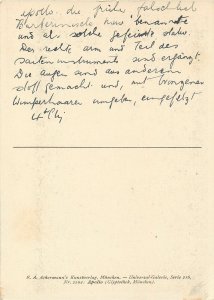 Apollo. die früher fälschlich
Barberinische Muse benannte
und als solche gefeierte Statue.
Der rechte Arm und Teil des
Saiteninstruments sind ergänzt.
Die Augen sind aus anderem
Stoff gemacht und, mit bronzenen
Wimperhaaren umgeben, eingesetzt
F. A. Ackermann's Kunstverlag, München. — Universal-Galerie, Serie 216,
Nr. 2501: Apollo (Glyptothek, München).